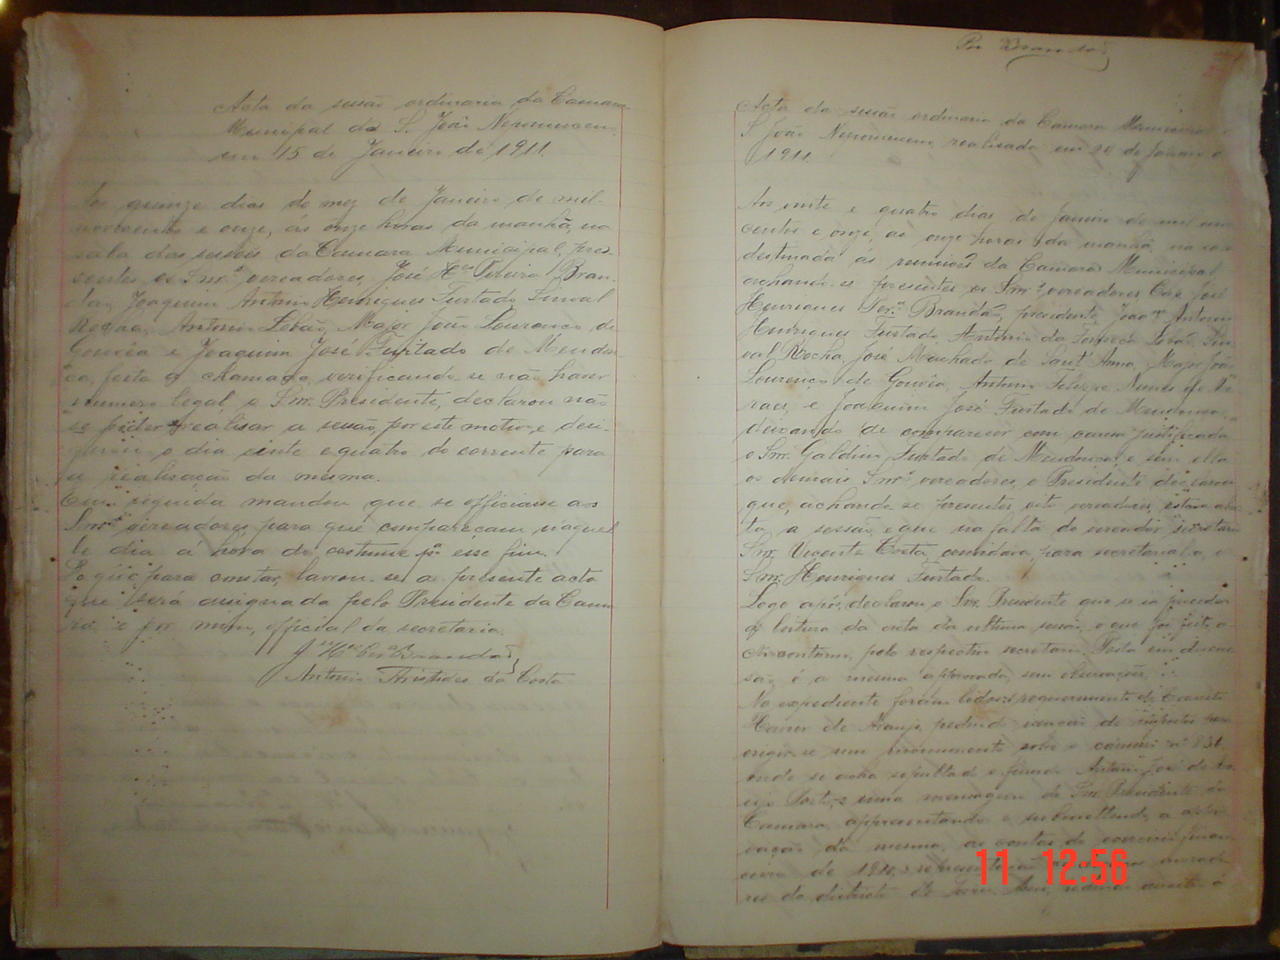 Acta da sessão ordinaria da Camara
Municipal de S. João Nepomuceno
em 15 de Janeiro de 1911.
Aos quinze dias do mez de Janeiro de mil
novecentos e onze, ás onze horas da manhã, na
sala das sessões da Camara Municipal, pre-
sentes os Snrs. vereadores, José Hes Pereira Bran-
dão, Joaquim Antonio Henriques Furtado, Sinval
Rocha, Antonio Lobão, Major João Lourenço de
Gouvêa e Joaquim José Furtado de Mendon-
ça, feita a chamada, verificando-se não haver
numero legal, o Snr. Presidente, declarou não
se poder realisar a sessão, por este motivo, e desi-
gnou o dia vinte e quatro do corrente para
a realisação da mesma.
Em seguida mandou que se officiasse aos
Snrs. vereadores, para que compareçam, naquel-
le dia á hora do costume pa esse fim.
Do que para constar, lavrou-se a presente acta
que será assignada pelo Presidente da Cama-
ra e por mim, official da secretaria.
J Hes Per Brandão
Antonio Aristides da Costa
Per Brandão
Acta da sessão ordinaria da Camara Municipal
S. João Nepomuceno realisada em de Janeiro
1911.
Aos vinte e quatro dias de Janeiro de mil nove
centos e onze, as onze horas da manhã, na sala
destinada as reuniões da Camara Municipal,
achando-se presentes os Snrs. vereadores José
Henriques Per.a Brandão, presidente, Antonio
Henriques Furtado, Antonio da Fonseca Lobão, Sin-
val Rocha, José Machado de Sant'Anna, Major João
Lourenço de Gouvêa, Antonio Felippe Nunes de Mo-
raes, e Joaquim José Furtado de Mendonça,
deixando de comparecer com causa justificada
o Snr. Galdino Furtado de Mendonça, e sem ella
os demais Snrs. vereadores, o Presidente declarou
que, achando-se presentes oito vereadores, estava aber-
ta, a sessão, e que na falta do vereador secretario
Snr. Vicente Costa, convidava para secretarial-a, o
Snr. Henriques Furtado.
Logo após, declarou o Snr. Presidente que se ia proceder
a leitura da acta da ultima sessão, o que foi feito, a-
cto continuo, pelo respectivo secretario. Posta em discus-
são, é a mesma approvada, sem observações.
No expediente foram lidos: requerimento de
Xavier de Araujo pedindo isenção de impostos para
erigir-se um monumento sobre o carneiro nº 831,
onde se acha sepultado o finado Antonio José de Ara-
ujo Porto; uma mensagem do Snr. Presidente da
Camara, apresentando e submettendo, a appro-
vação da mesma, as contas do exercicio finan-
ceiro de 1910; representação morado-
res do districto de
11 12:56